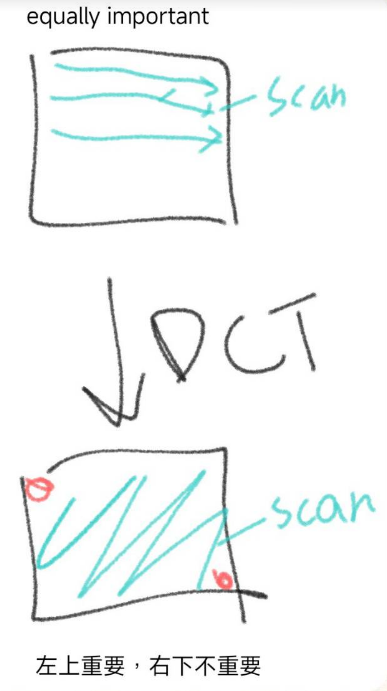 equally important
scan
DCT
scan
左上重要，右下不重要